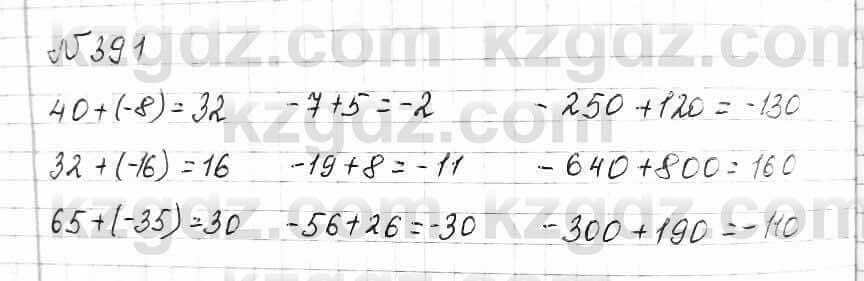 №391
40+(-8)=32 -7+5=-2 -250+120=-130
32+(-16)=16 -19+8=-11 -640+800=160
65+(-35)=30 -56+26=-30 -300+190=-110
kzgdz.com kzgdz.com
kzgdz.com
kzgdz.com kzgdz.com